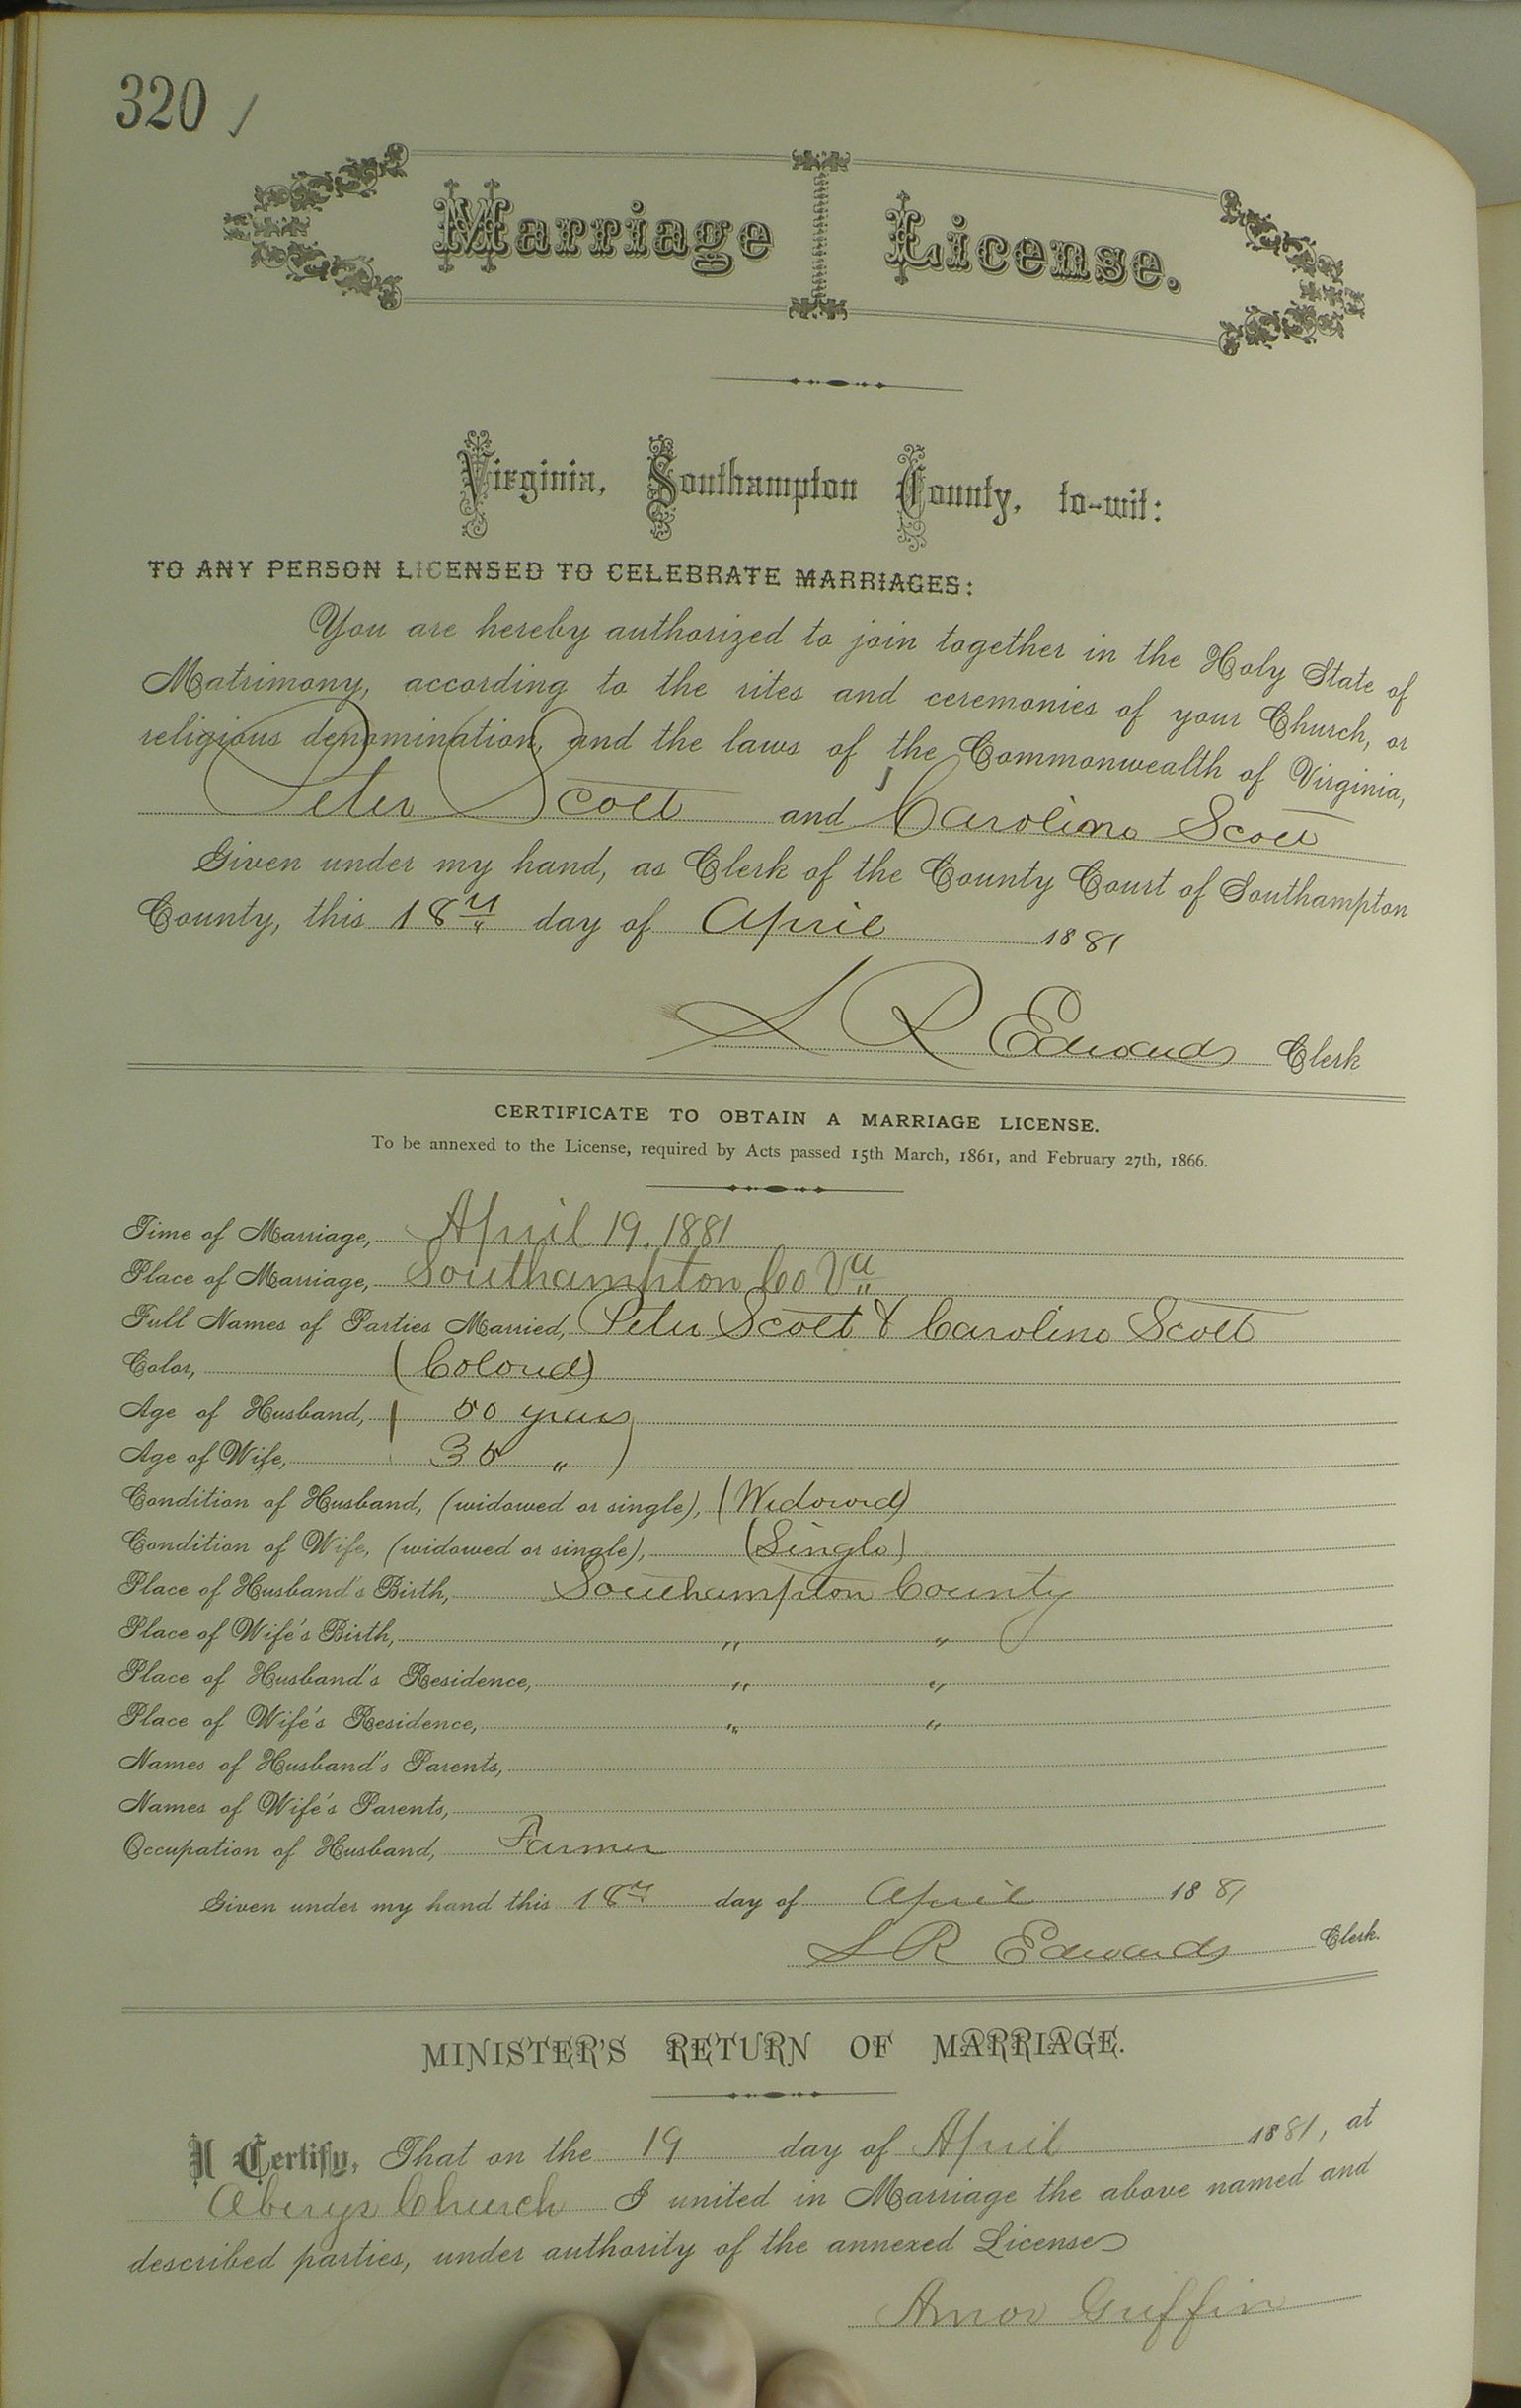 320 /
Marriage License.
Virginia, Southampton County, to-wit:
TO ANY PERSON LICENSED TO CELEBRATE MARRIAGES:
You are hereby authorized to join together in the Holy State of
Matrimony, according to the rites and ceremonies of your Church, or
religious denomination, and the laws of the Commonwealth of Virginia,
Peter Scott and Caroline Scott
Given under my hand, as Clerk of the County Court of Southampton
County, this 18th day of April 1881
L R Edwards Clerk
CERTIFICATE TO OBTAIN A MARRIAGE LICENSE.
To be annexed to the License, required by Acts passed 15th March, 1861, and February 27th, 1866.
Time of Marriage, April 19. 1881
Place of Marriage, Southampton Co Va
Full Names of Parties Married, Peter Scott & Caroline Scott
Color, (Colored)
Age of Husband, 50 years
Age of Wife, 35 "
Condition of Husband, (widowed or single), (Widowed)
Condition of Wife, (widowed or single), (Single)
Place of Husband's Birth, Southampton County
Place of Wife's Birth, " "
Place of Husband's Residence, " "
Place of Wife's Residence, " "
Names of Husband's Parents,
Names of Wife's Parents,
Occupation of Husband, Farmer
Given under my hand this 18th day of April 1881
L R Edwards Clerk.
MINISTER'S RETURN OF MARRIAGE.
I Certify, That on the 19 day of April 1881, at
Church I united in Marriage the above named and
described parties, under authority of the annexed License
Amos Griffin